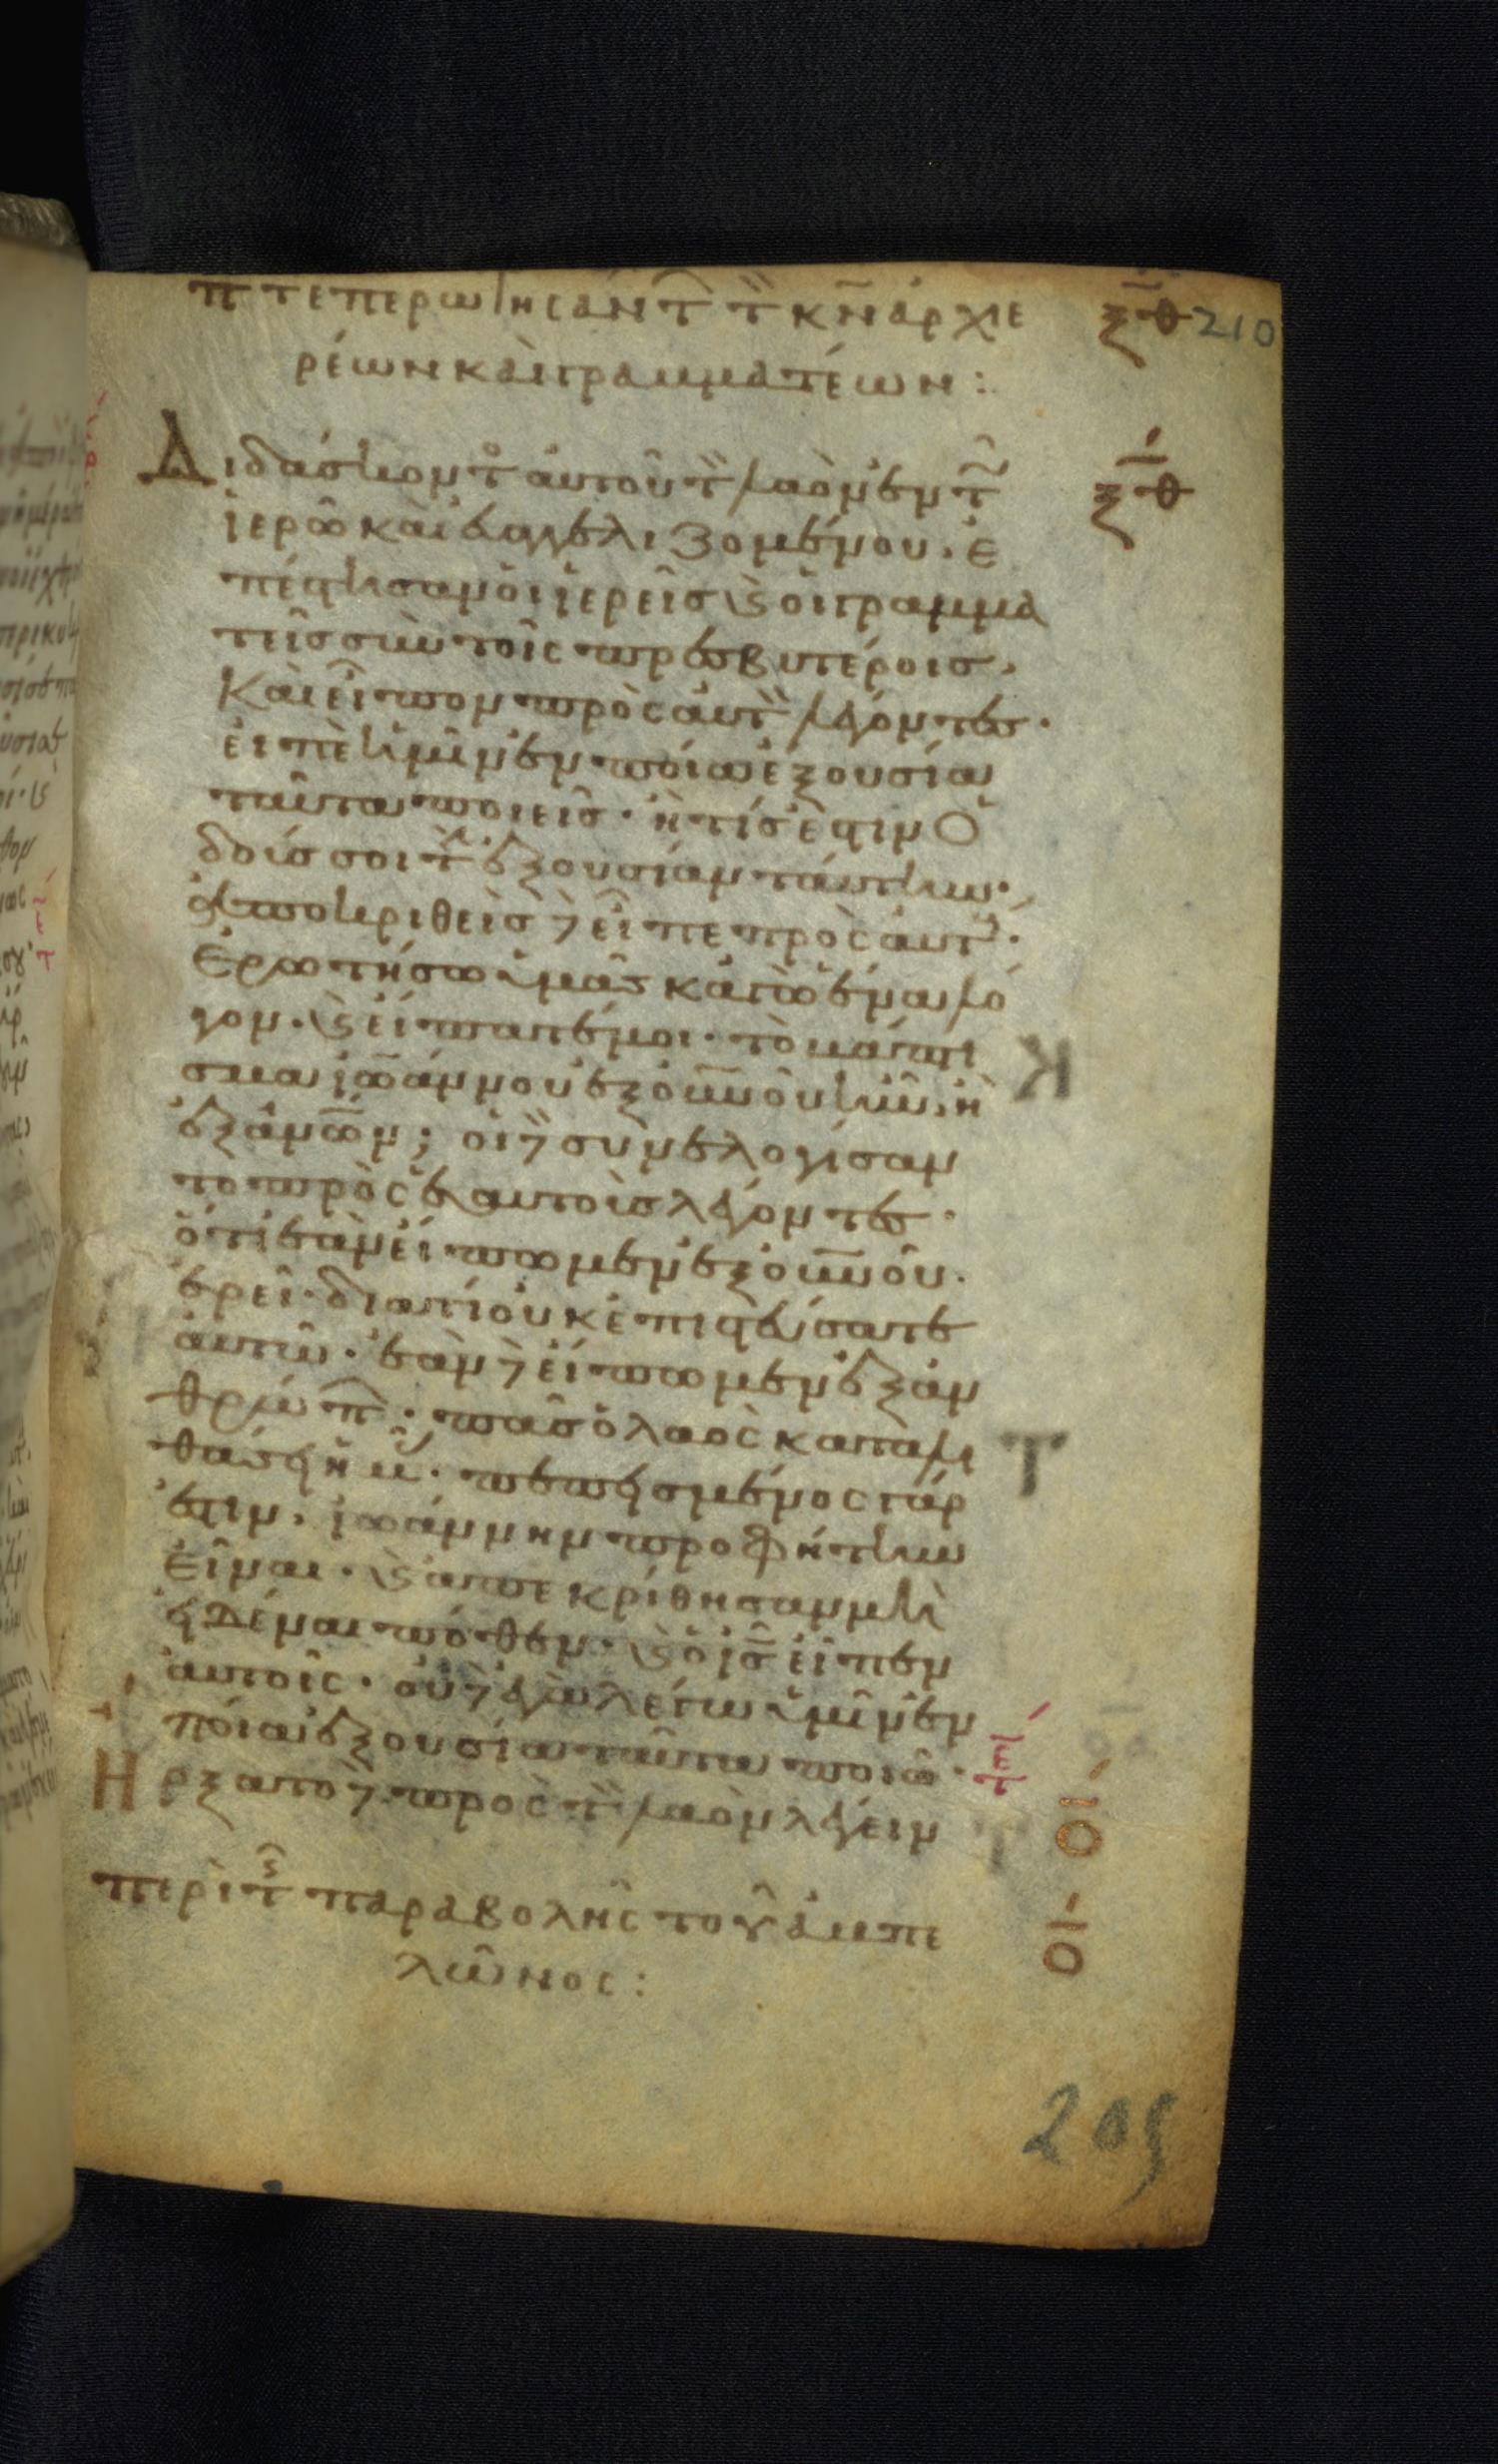 π τ επερωτησάντ τ κν αρχιε ξθ 210
ρέων και γραμματέων:
Διδάσκοντ αυτού τ λαὸν ἐν τ ξθ
ἱερῶ καὶ εὐαγγελιζομένου. ἐ
πέστησαν ὁι ἱερεῖς ϗ ὁι γραμμα
τεῖς σὺν τοῖς πρεσβυτέροις.
Καὶ εἶπον πρὸς ἀυτ λέγοντες.
ἐιπὲ ἡμῖν ἐν ποία ἐξουσία
ταῦτα ποιεῖς. ἢ τίς ἐστιν ὁ
δούς σοι τ ἐξουσίαν ταύτην.
ἀποκριθεὶς δὲ εἶπε πρὸς ἀυτ.
Ἐρωτήσω ὑμᾶς κἀγὼ ἕνα λό
γον. ϗ ἐίπατέ μοι. τὸ βάπτι
σμα ἰωάννου ἐξ ουνου ἦν. ἢ
ἐξ ανων; οι δὲ συνελογίσαν
το πρὸς ἑαυτοὺς λέγοντες.
ὅτι ἐὰν ἐίπωμεν ἐξ ουνου.
ἐρεῖ. διατί ὀυκ ἐπιστεύσατε
ἀυτῶ. ἐὰν δὲ ἐίπωμεν ἐξ ἀν
θρώπ. πᾶς ὁ λαὸς καταλι
θάσει ἡμ. πεπεισμένος γάρ
ἐστιν. ἰωάννην προφήτην
εἶναι. ϗ ἀπεκρίθησαν μὴ
ἐιδέναι πόθεν. ϗ ὁ ις εἶπεν
ἀυτοῖς. ὀυδὲ ἐγὼ λέγω ὑμῖν ἐν
ποία ἐξουσία ταῦτα ποιῶ.
Ἤρξατο δὲ πρὸς τ λαὸν λέγειν Ο
περὶ τ παραβολῆς τοῦ ἀμπε Ο
λῶνος:
205